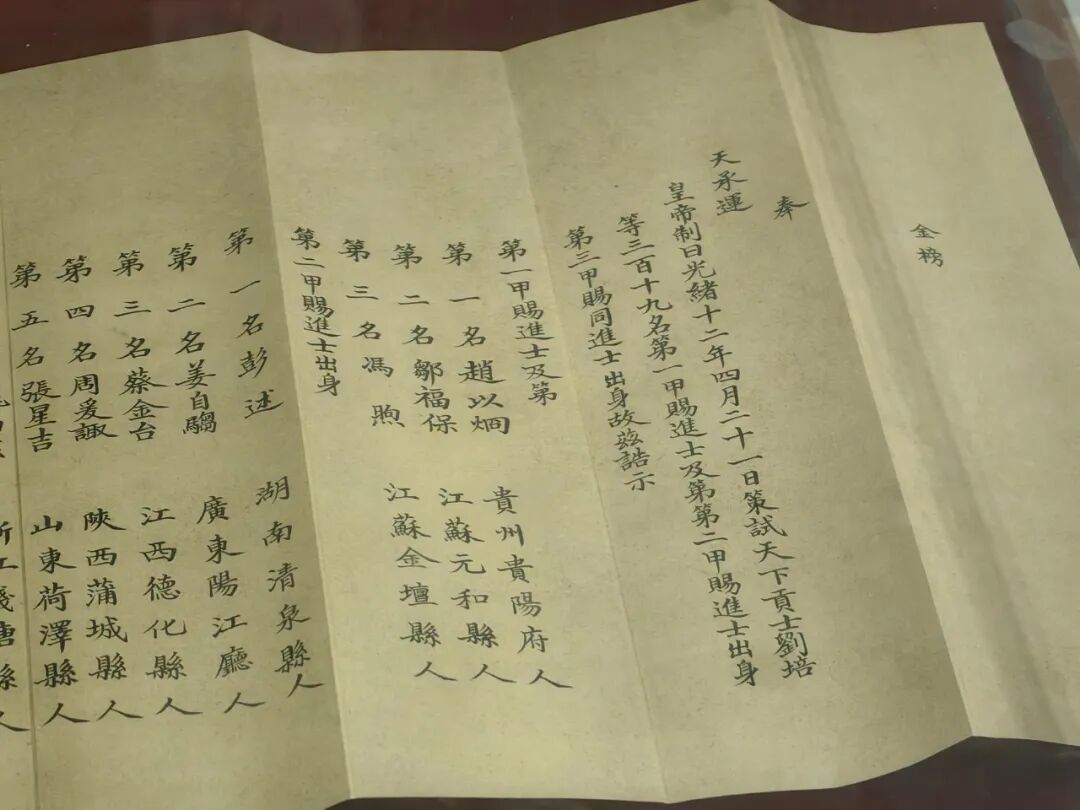 金榜
奉
天承運
皇帝制曰光緒十二年四月二十一日策試天下貢士劉培
等三百十九名第一甲賜進士及第第二甲賜進士出身
第三甲賜同進士出身故茲誥示
第一甲賜進士及第
第一名趙以烱 貴州貴陽府人
第二名鄒福保 江蘇元和縣人
第三名馮煦 江蘇金壇縣人
第二甲賜進士出身
第一名彭述 湖南清泉縣人
第二名姜自騶 廣東陽江廳人
第三名蔡金台 江西德化縣人
第四名周爰諏 陝西蒲城縣人
第五名張星吉 山東荷澤縣人
江錢塘縣人